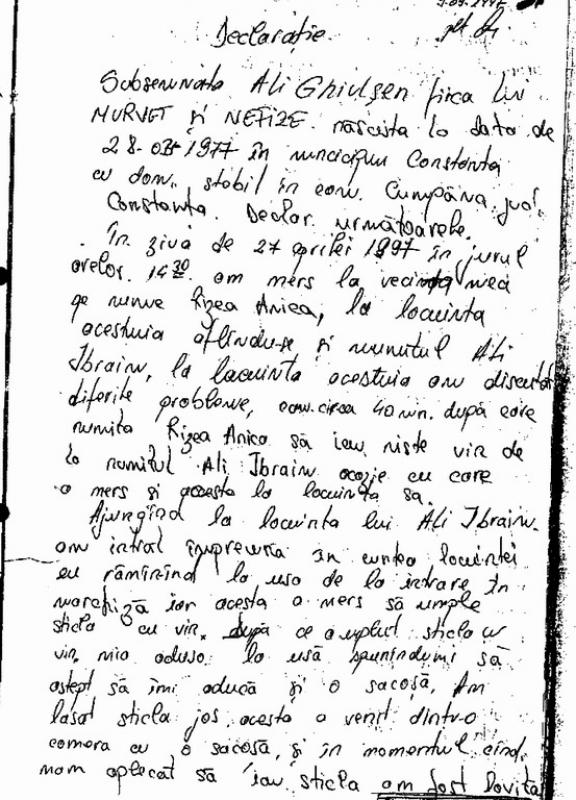 Declarație
Subsemnata Ali Ghiulsen fiica lui
MURVET și NEFIZE născuta la data de
28-03-1977 în municipiu Constanta
cu dom. stabil în com. Cumpăna jud.
Constanta. Declar următoarele.
In ziua de 27 aprilei 1997 în jurul
orelor 14³⁰ am mers la vecina mea
pe nume Rizea Anica, la locuinta
acestuia aflindu-se și numitul Ali
Ibraim, la locuinta acestuia am discutat
diferite probleme, cca. circa 40 min. după care
numita Rizea Anica să iau niste vin de
la numitul Ali Ibraim ocazie cu care
a mers și acesta la locuința sa.
Ajungînd la locuinta lui Ali Ibraim
am intrat împreună în curtea locuintei
eu rămînînd la usa de la intrare în
marchiză iar acesta a mers să umple
sticla cu vin. după ce a umplut sticla cu
vin, mia aduso la usă spunîndumi să
astept să îmi aducă și o sacosă. Am
lasat sticla jos, acesta a venit dintr-o
camera cu o sacosă, și în momentul cînd
mam aplecat să iau sticla am fost lovita